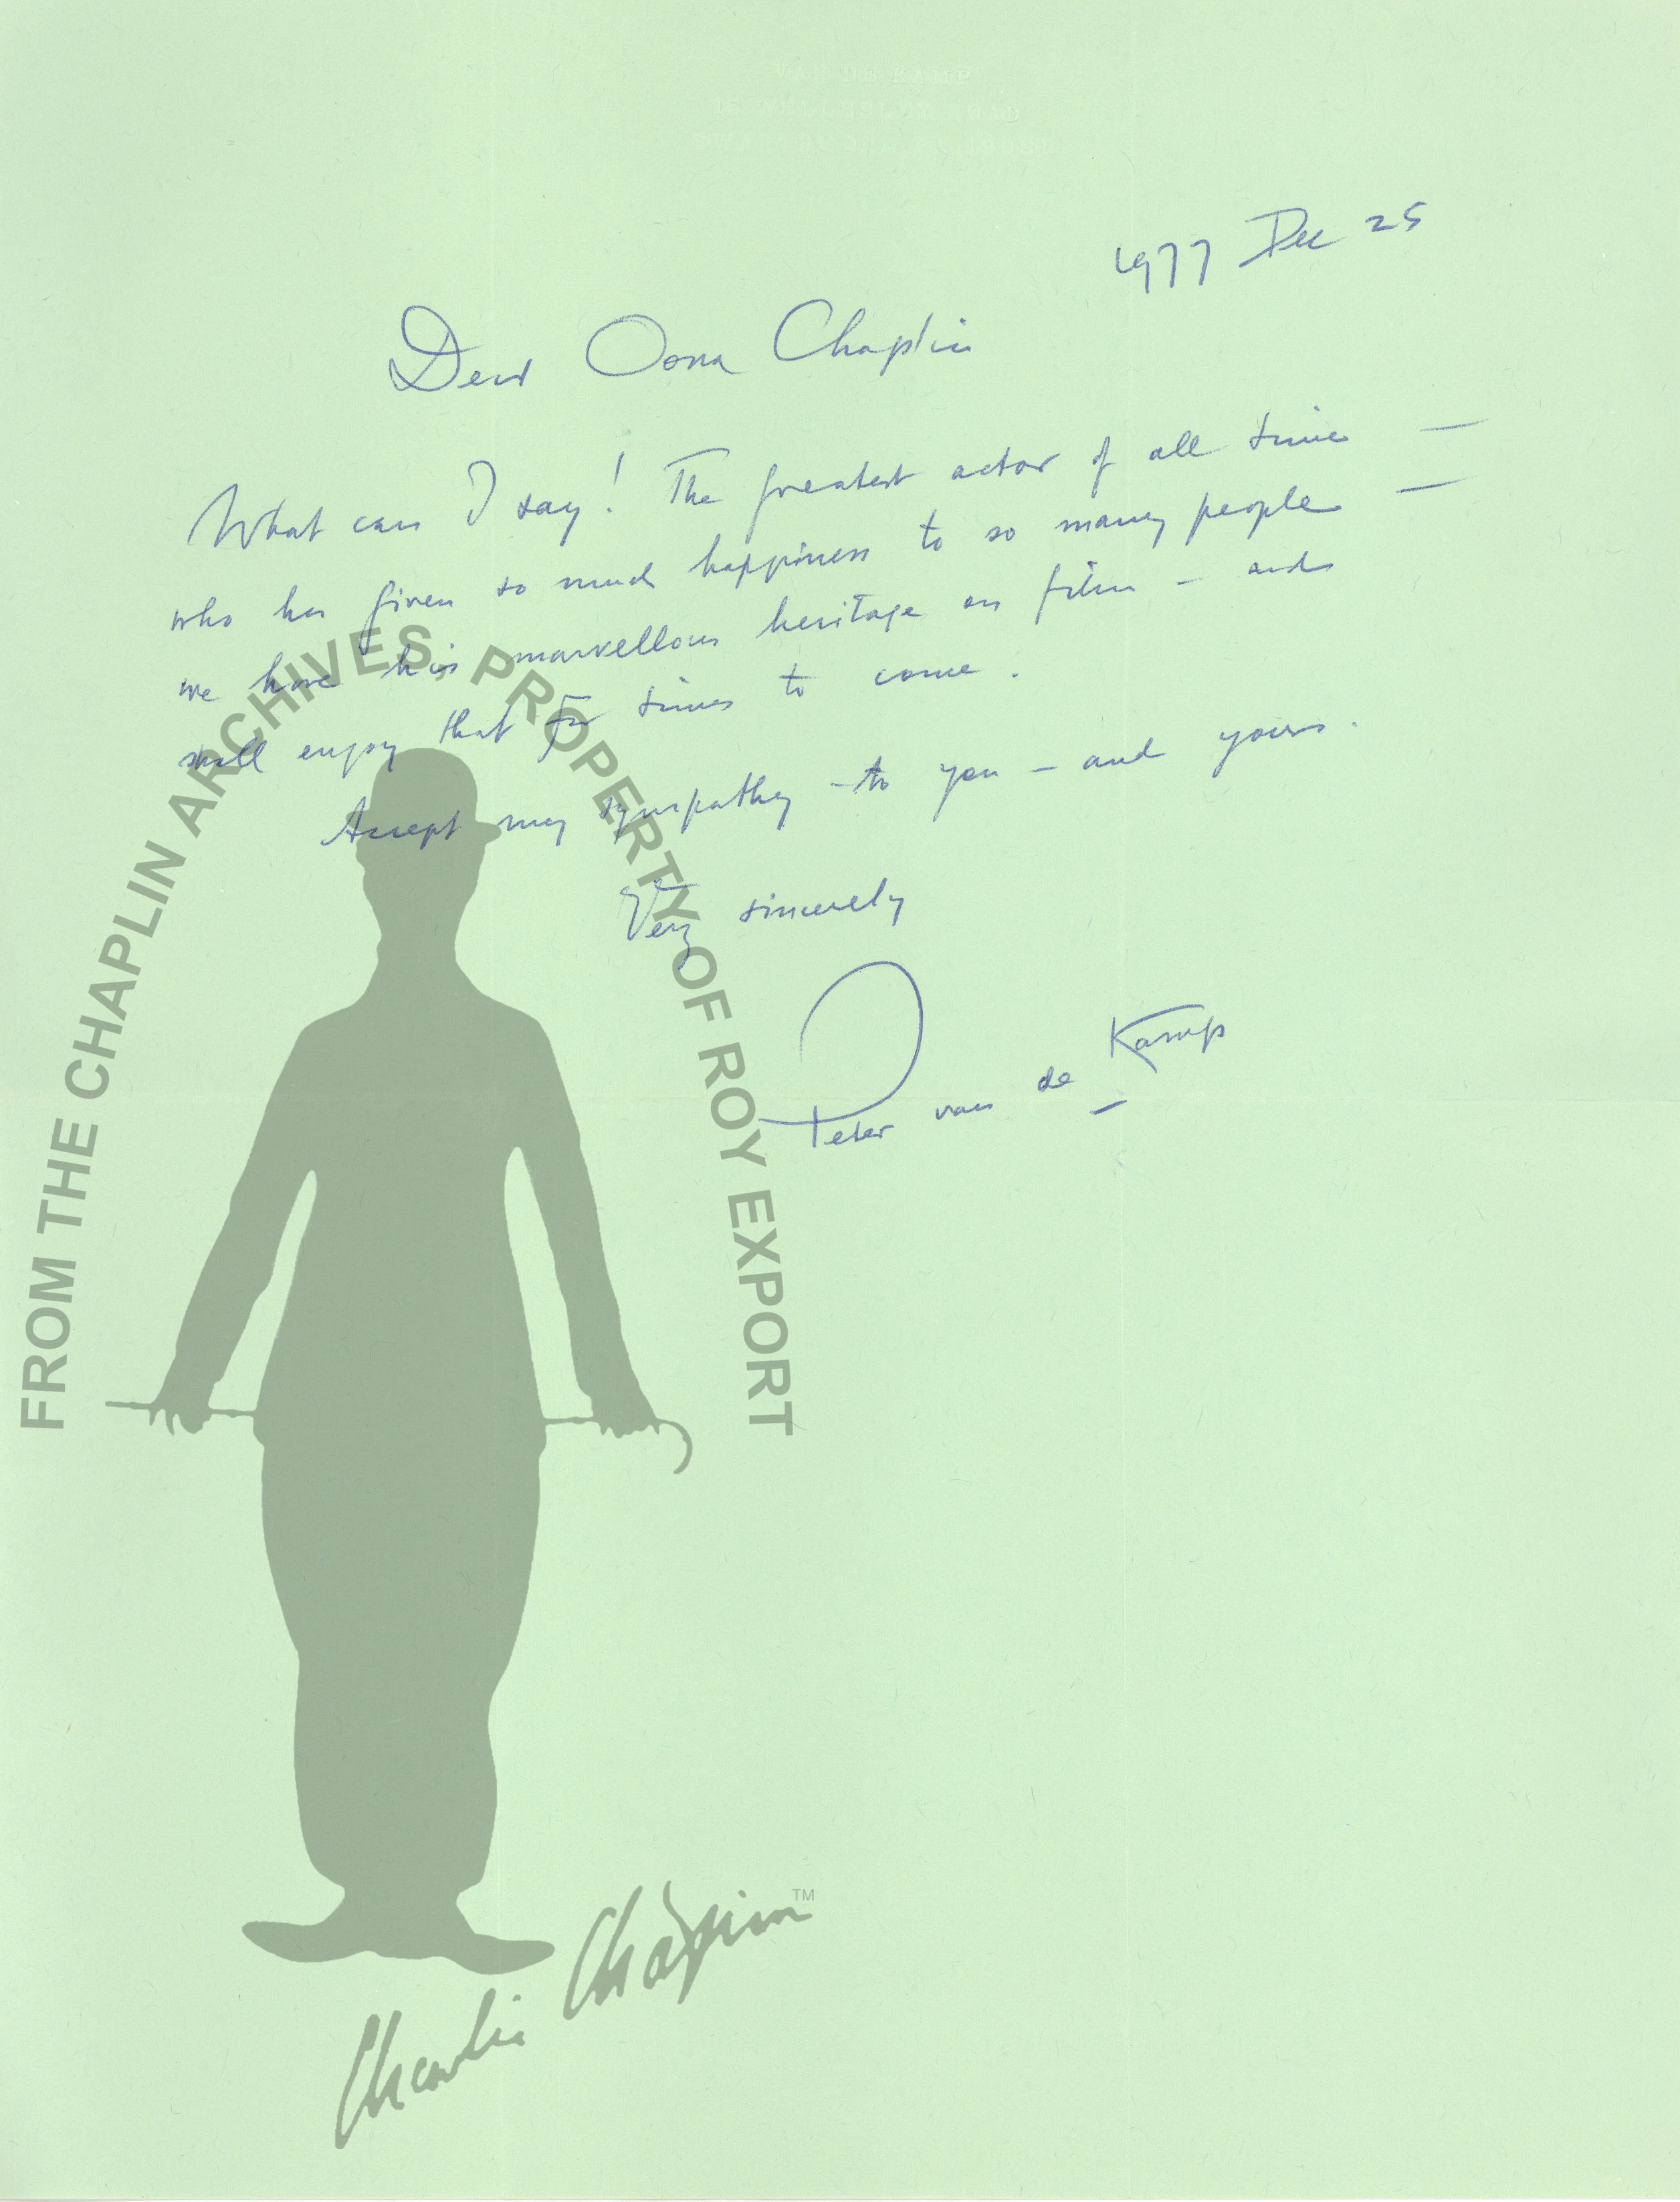 VAN DE KAMP
1977 Dec 25
Dear Oona Chaplin
What can I say! The greatest actor of all time —
who has given so much happiness to so many people —
we have his marvellous heritage on film - and
shall enjoy that for times to come.
Accept my sympathy - to you - and yours.
Very sincerely
Peter van de Kamp
FROM THE CHAPLIN ARCHIVES, PROPERTY OF ROY EXPORT
Charlie Chaplin TM